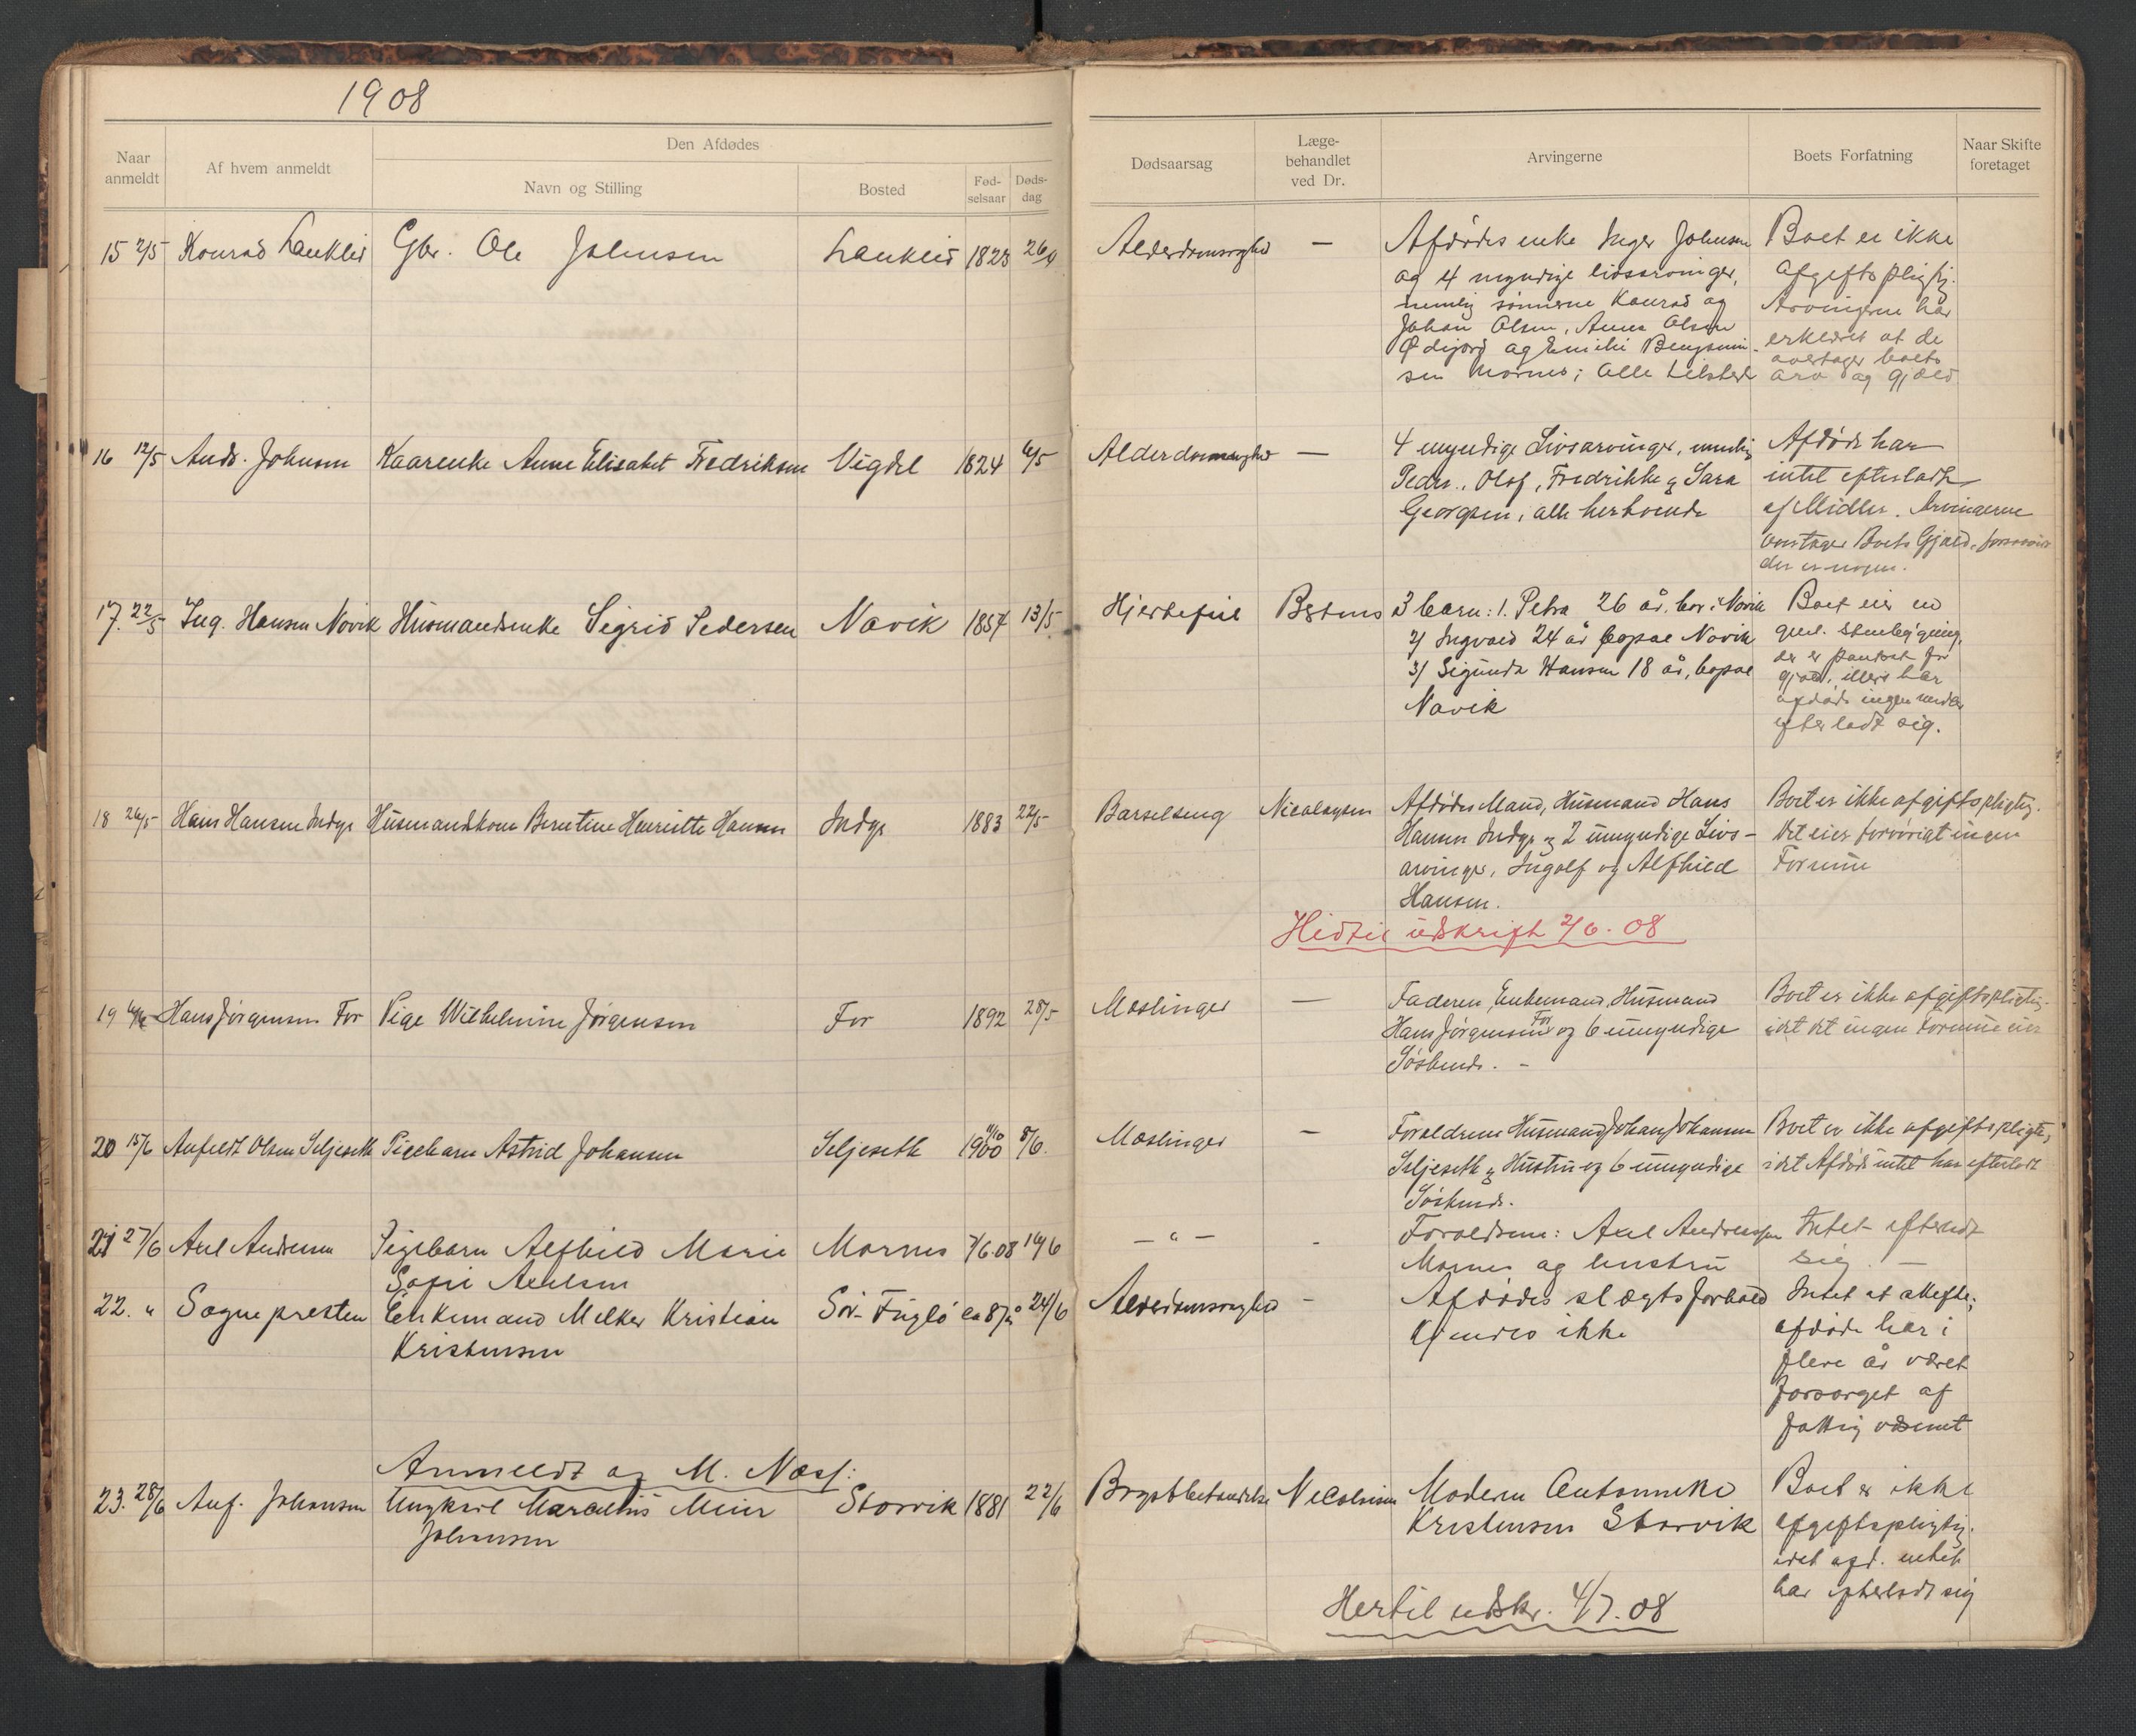 1908
Naar anmeldt
Af hvem anmeldt
Den Afdødes
Navn og Stilling
Bosted
Fød-selsaar
Døds-dag
Dødsaarsag
Læge-behandlet ved Dr.
Arvingerne
Boets Forfatning
Naar Skifte foretaget
15 2/5 Konrad Lauklid Gbr. Ole Johnsen Lauklid 1823 26/4 Alderdomsvaghed —
Afdødes enke Inger Johnsen
og 4 myndige livsarvinger,
nemlig sönnerne Konrad og
Johan Olsen, Anna Olsen
Ødijord og Emilie Benjamin-
sen Mornes; Alle tilstede
Boet er ikke
afgiftspligtig.
Arvingerne har
erklæret at de
overtager boets
arv og gjæld
16 12/5 Ands. Johnsen Kaarenke Anne Elisabet Fredriksen Vigdel 1824 6/5 Alderdomsvaghed —
4 myndige Livsarvinger, nemlig
Peder, Olaf, Fredrikke & Sara
Georgsen, alle herboende
Afdøde har
intet efterladt
af Midler. Arvingerne
overtager Boets Gjæld, forsaavidt
der er nogen.
17. 22/5 Ing. Hansen Novik Husmandsenke Sigrid Pedersen Novik 1857 13/5 Hjertefeil
3 barn: 1. Petra 26 år, bor i Novik
2/ Ingvald 24 år bopæl Novik
3/ Sigunda Hansen 18 år, bopæl
Novik
Boet eier en
gml. stuebygning,
der er pantsat for
gjæld, ellers har
afdøde ingen verdier
efterladt sig.
18 26/5 Hans Hansen Indyr Husmandskone Berntine Henriette Hansen Indyr 1883 22/5 Barselseng Nicolaysen
Afdødes Mand, Husmand Hans
Hansen Indyr & 2 umyndige Livs-
arvinger, Ingolf og Alfhild
Hansen.
Boet er ikke afgiftspligtig.
Det eier forøvrigt ingen
Formue
Hidtil udskrift 2/6. 08
19 Hans Jørgensen For Pige Wilhelmine Jørgensen For 1892 28/5 Mæslinger —
Faderen, Enkemand, Husmand
Hans Jørgensen For og 6 umyndige
Söskende. -
Boet er ikke afgiftspligtig,
idet det ingen Formue eier
20 15/6 Anfeldt Olsen Seljeseth Pigebarn Astrid Johansen Seljeseth 11/10 1900 8/6. Mæslinger —
Foraeldrene Husmand Johan Johansen
Seljeseth & Hustru og 6 umyndige
Söskende.
Boet er ikke afgiftspligtig,
idet Afdøde intet har efterladt
21 27/6 Axel Andersen Pigebarn Alfhild Marie
Sofie Axelsen Mornes 7/6.08 14/6 — " — -
Forældrene: Axel Andreassen
Mornes og hustru
Intet efterladt
sig. —
22. " Sognepresten Enkemand Melker Kristian
Kristensen Sör-Fuglö ca 87 år 24/6 Alderdomsvaghed -
Afdødes slægtsforhold
kjendes ikke
Intet at skifte;
afdøde har i
flere år været
forsørget af
fattigvæsenet
Anmeldt af M. Næss:
23. 28/6 Anf. Johansen Ungkarl Marcelius Meier
Johansen Storvik 1881 22/6 Nicolaisen
Moderen Antonneke
Kristensen Storvik
Boet er ikke
afgiftspligtig
idet afd. intet
har efterladt sig
Hertil udskr. 4/7. 08